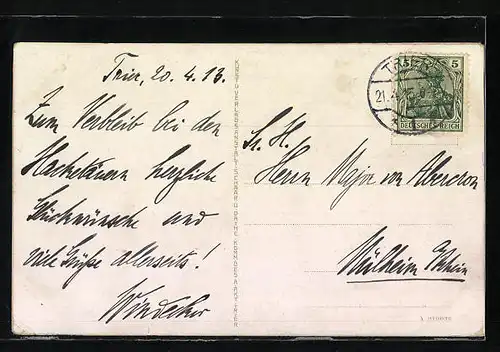 Trier, 20.4.13.
Zum Verbleib bei den
Hacketäuern herzliche
Glückwünsche und
viele Grüße allerseits!
Windecker
KUNST-VERLAGSANSTALT SCHAAR & DATHE, KOMM.-GES. A. AKT., TRIER
TRIER
21.4.
5 5
DEUTSCHES REICH
Sr. H.
Herrn Major von Abercron
Mülheim Rhein